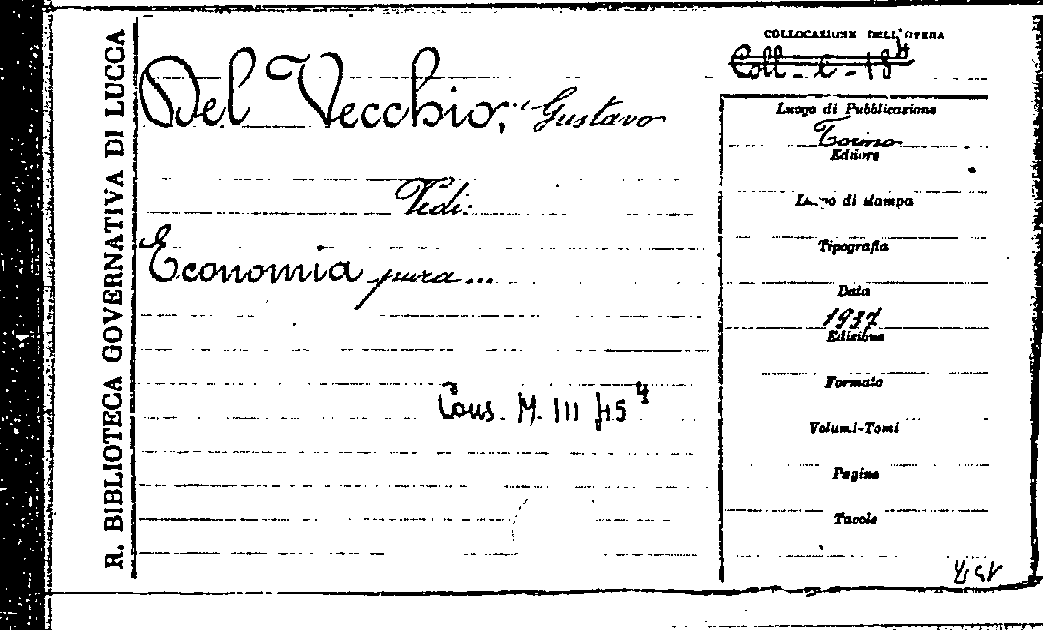 R. BIBLIOTECA GOVERNATIVA DI LUCCA
Del Vecchio, Gustavo
Vedi:
Economia pura...
Cous. M. III 45 4
COLLOCAZIONE DELL'OPERA
Coll - C - 18 4
Luogo di Pubblicazione
Torino
Editore
Luogo di stampa
Tipografia
Data
1937
Edizione
Formato
Volumi-Tomi
Pagine
Tavole